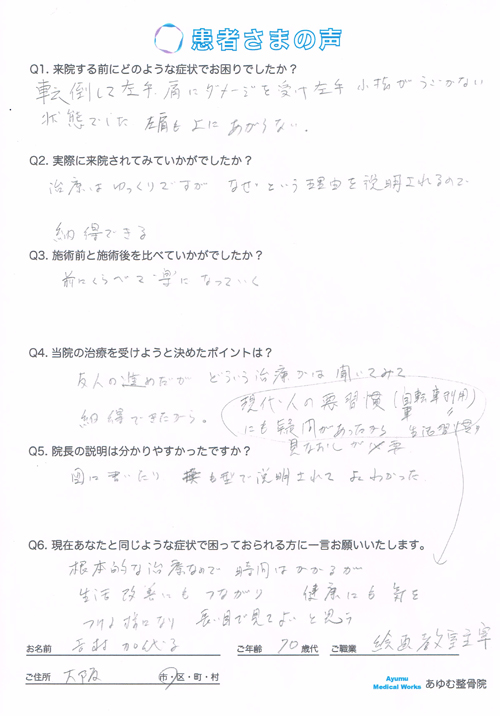 患者さまの声
Q1. 来院する前にどのような症状でお困りでしたか？
転倒して左手 肩にダメージを受け左手 小指がうごかない
状態でした 左肩も上にあがらない.
Q2. 実際に来院されてみていかがでしたか？
治療はゆっくりですが なぜという理由を説明されるので
納得できる
Q3. 施術前と施術後を比べていかがでしたか？
前にくらべて楽になっていく
Q4. 当院の治療を受けようと決めたポイントは？
友人の進めだが どういう治療かは聞いてみて
納得できたから。
現代人の悪習慣 (自転車 利用)
にも疑問があったから 生活習慣
見なおしが
Q5. 院長の説明は分かりやすかったですか？
図に書いたり 模型で説明されて よくわかった
Q6. 現在あなたと同じような症状で困っておられる方に一言お願いいたします。
根本的な治療なので 時間はかかるが
生活改善にもつながり 健康にも気を
つける様になり 長い目で見てよいと思う
お名前 吉村 加代子 ご年齢 70 歳代 ご職業 絵画教室主宰
ご住所 大阪 市・区・町・村
Ayumu
Medical Works あゆむ整骨院